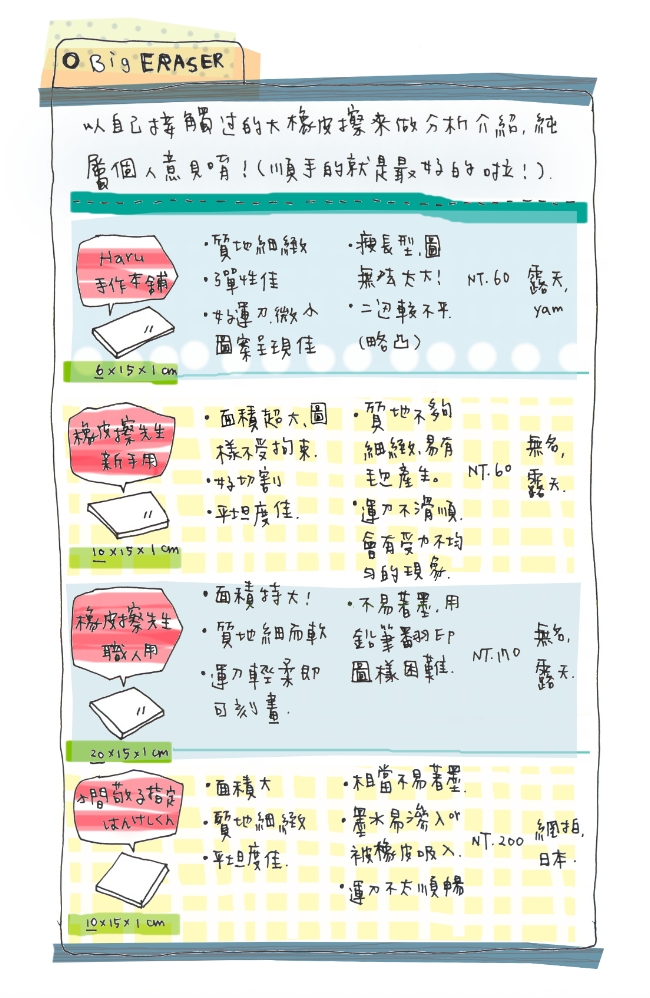 Big ERASER
以自己接觸过的大橡皮擦來做分析介紹,純
屬個人意見唷!(順手的就是最好的啦!).
Haru
手作本舖
6x15x1cm
·質地細緻
·彈性佳
·好運刀.微小
圖案呈現佳
·瘦長型.圖
無法太大!
·二边較不平.
(略凸)
NT.60
露天,
yam
橡皮擦先生
新手用
10x15x1cm
·面積超大,圖
樣不受拘束.
·好切割
·平坦度佳.
·質地不夠
細緻.易有
毛边產生。
·運刀不滑順.
會有受力不均
勻的現象.
NT.60
無名,
露天.
橡皮擦先生
職人用
20x15x1cm
·面積特大!
·質地細而軟
·運刀輕柔即
可刻畫.
·不易著墨.用
鉛筆翻印
圖樣困難.
NT.170
無名,
露天.
水間敬子指定
はんけしくん
10x15x1cm
·面積大
·質地細緻
·平坦度佳.
·相當不易著墨.
·墨水易滲入or
被橡皮吸入.
·運刀不太順暢
NT.200
網拍,
日本.